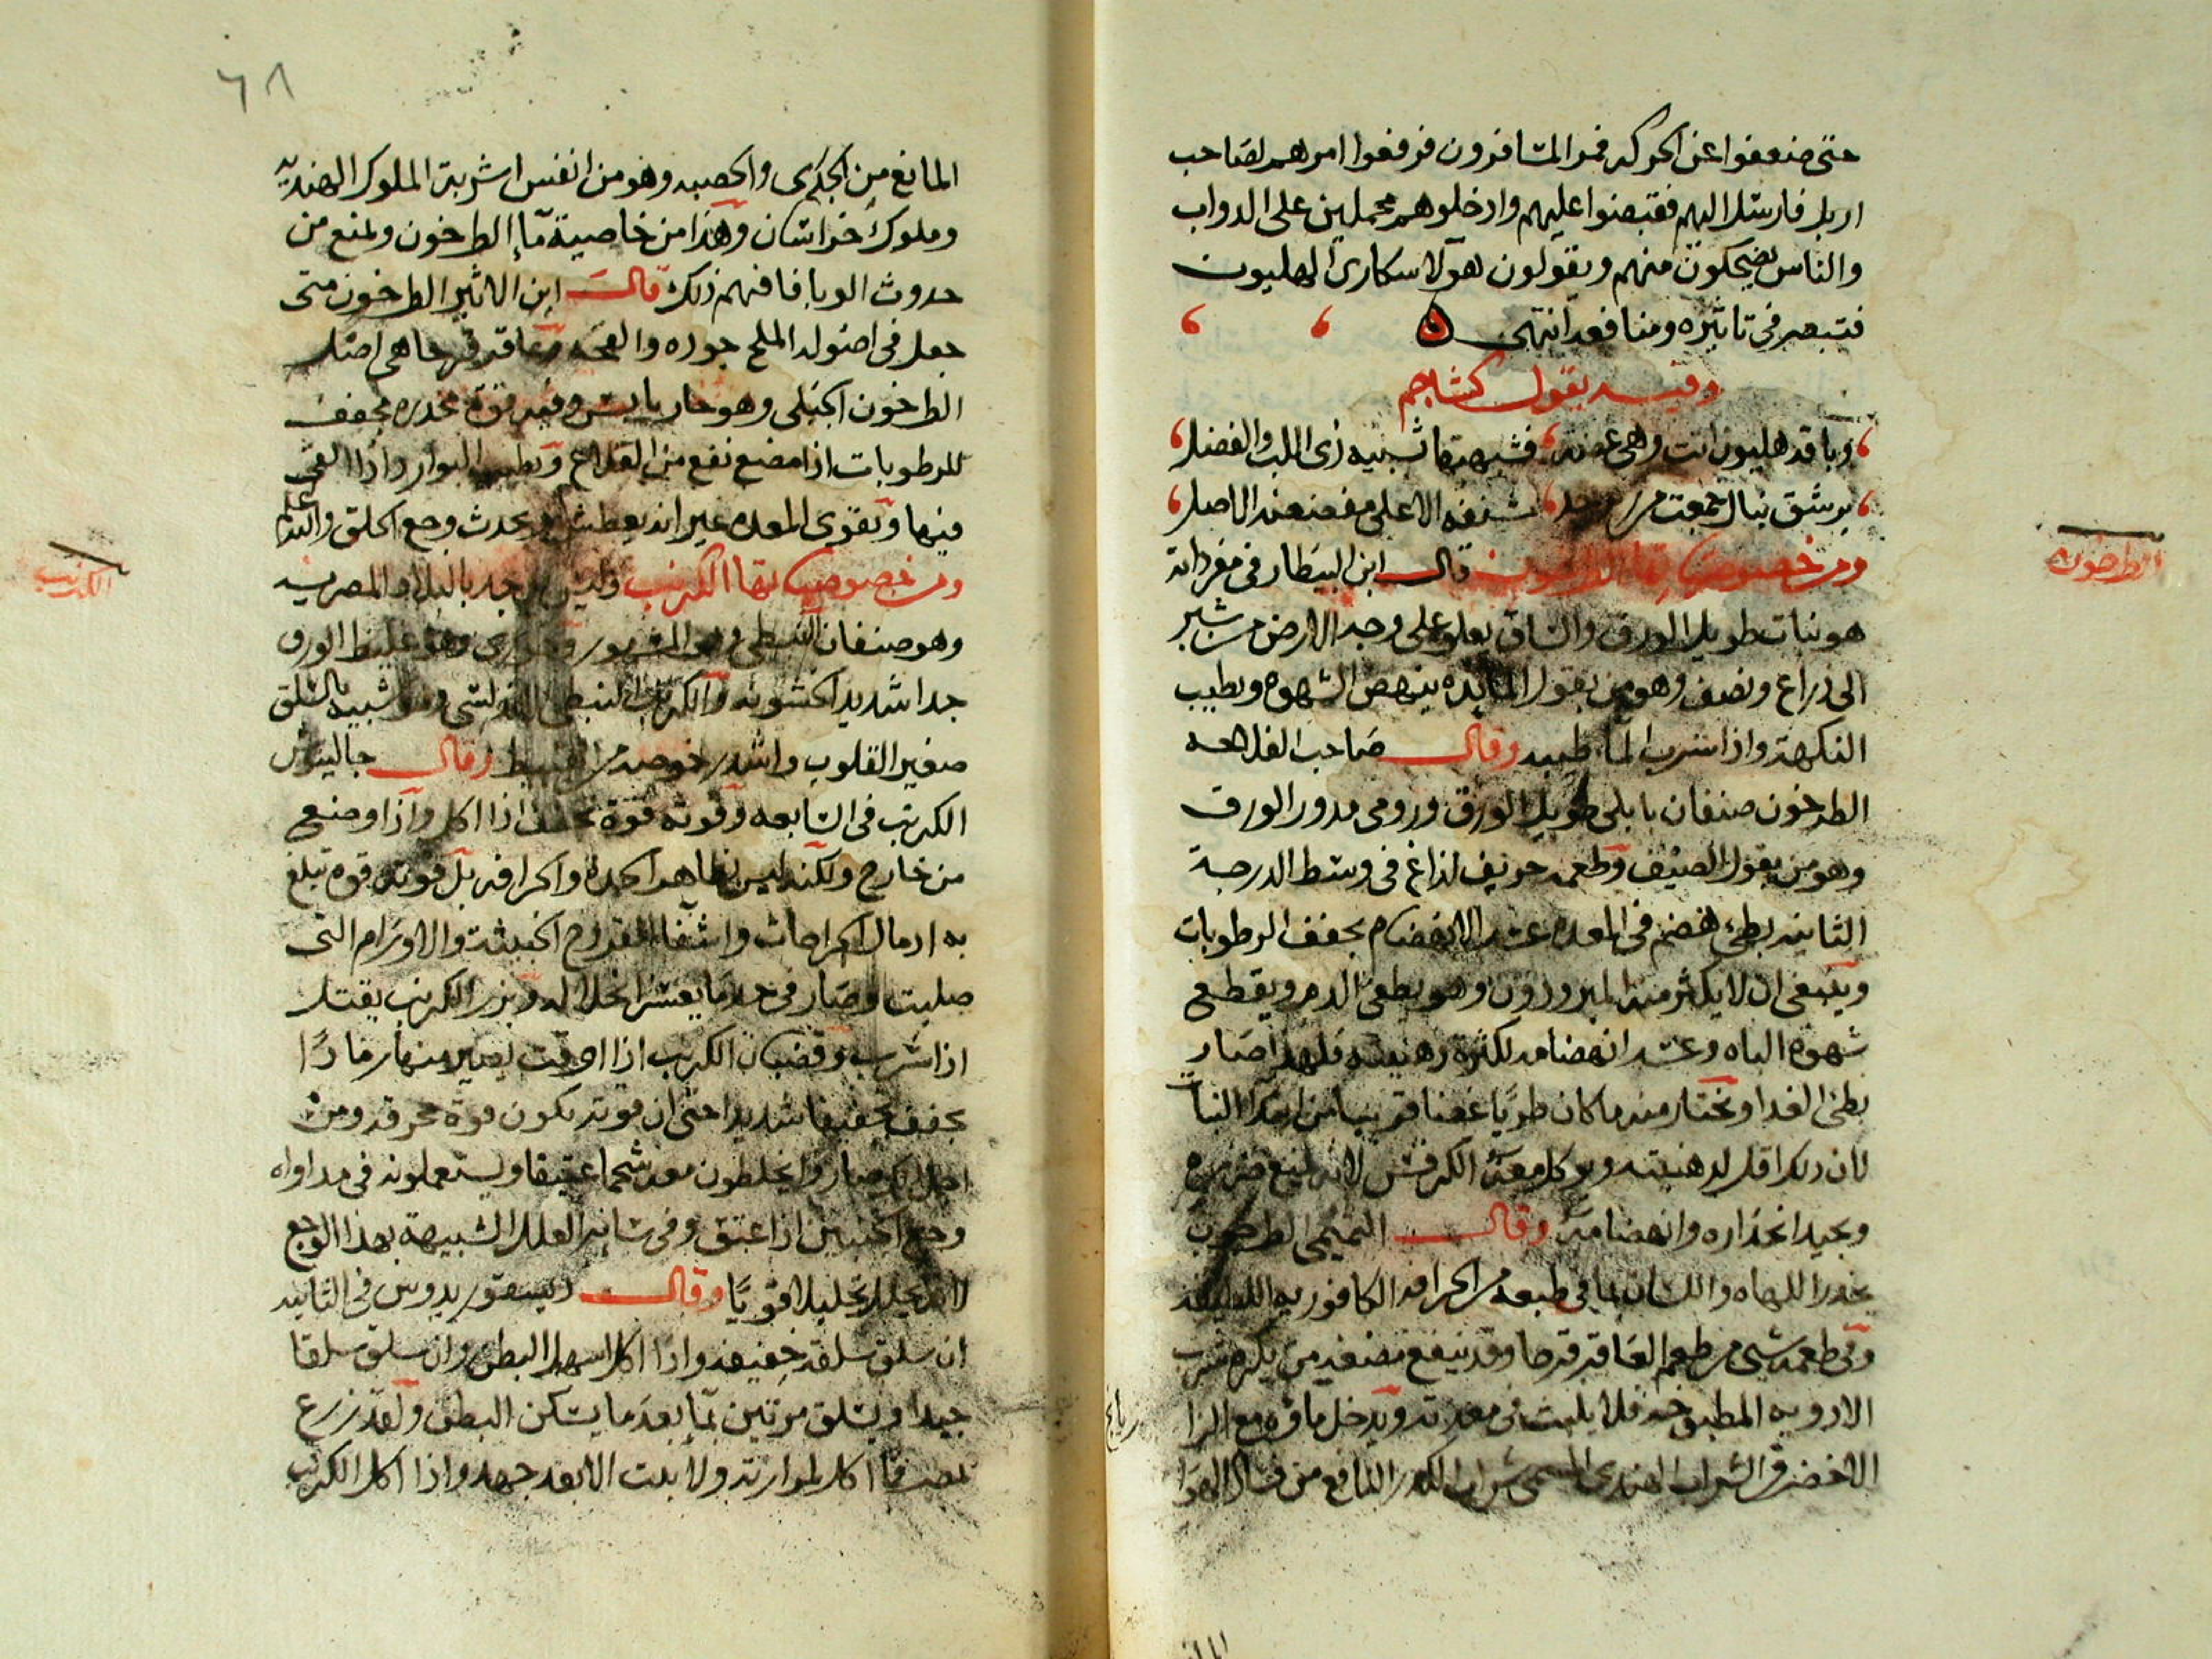 حتى ضعفوا عن الحركه فمر المسافرون فرفعوا امرهم لصاحب
اربل فارسل اليهم فقبضوا عليهم وادخلوهم محملين على الدواب
والناس يضحكون منهم ويقولون هولآ سكارى الهليون
فتبصر في تاثيره ومنافعه انتهى
وفيه يقول كشاجم
وباقة هليون اتت وهي غضه فشبهتها تشبيه ذى اللب والفضل
برشق نبال جمعت من
الاعلى مفضضة الاصل
ومن خصوص بقل الطرخون قال ابن البيطار في مفرداته
هو نبات طويل الورق والساق يعلو على وجه الارض من شبر
الى ذراع ونصف وهو من بقول المايده ينهض الشهوه ويطيب
النكهة واذا شرب الماء طيبه وقال صاحب الفلاحه
الطرخون صنفان بابلي طويل الورق ورومي مدور الورق
وهو من بقول الصيف وطعمه حريف لذاع في وسط الدرجة
الثانيه بطئ الهضم في المعده عسر الانهضام يجفف الرطوبات
وينبغي ان لا يكثر منه المبرودون وهو يطفى الدم ويقطع
شهوة الباه وعسر انهضامه لكثرة دهنيته فلهذا صار
بطئ الغدا ويختار منه ما كان طريا غضا قريبا من ابتدا النبات
لان ذلك اقل لدهنيته ويوكل معه الكرفس لانه يمنع ضرره
ويجيد انحداره وانهضامه وقال التميمي الطرخون
يخدر اللهاه واللسان بما في طبعه من الحرافه الكافوريه اللطيفه
وفي طعمه شي من طعم العاقر قرحا وقد ينفع مضغه من يكره شرب
الادويه المطبوخه فلا يلبث في معدته ويدخل ماوه مع الرازيانج
الاخضر في الشراب الهندى المسمى شراب الكدر النافع من فساد الهوا
الطرخون
٦٨
المانع من الجدرى والحصبه وهو من انفس اشربة الملوك الهنديه
وملوك خراسان وهذا من خاصية مآ الطرخون ويمنع من
حدوث الوبا فافهم ذلك قالت ابن الاثير الطرخون متى
جعل في اصوله الملح جوده والعاقر قرحا هي اصل
الطرخون الجبلى وهو حار يابس وفيه قوة مخدره مجفف
للرطوبات اذا مضغ نفع من القلاع ويطيب البوارد اذا القى
فيها ويقوى المعده غير انه يعطش ويحدث وجع الحلق والله اعلم
ومن خصوصيات بقل الكرنب وليس يوجد بالبلاد المصريه
وهو صنفان النبطي وهو المشهور وهو غليظ الورق
جدا شديد الخشونه والكرنب النبطي الاندلسى وهو شبيه بالسلق
صغير القلوب واشد رخوصه من النبط وقال جالينوس
الكرنب في السابعه وقوته قوة تجفف اذا اكل واذا وضع
من خارج ولكنه ليس بظاهر الحده والحرافه بل قوته قوه تبلغ
به ادمال الجراحات واشفا القروح الخبيثة والاورام التى
صلبت وصار في حد ما يعسر انحلاله وبزر الكرنب يقتل
اذا شرب وقضبان الكرنب اذا احرقت يصير منها رمادًا
يجفف تجفيفا شديدا حتى ان قوته يكون قوة محرقه ومن
اجل ذلك صاروا يخلطون معه شحما عتيقا ويستعملونه في مداواه
وجع الجنبين اذا عتق وفي ساير العلل الشبيهة بهذا الوجع
لانه يحلل تحليلا قويًا وقال ديسقوريدوس في الثانيه
ان سلق سلقة خفيفه واذا اكل اسهل البطن وان سلق سلقا
جيدا ويسلق مرتين بمآ بعد ما يسكن البطن ولقد زرع
بمصر فما اكل لمرارته ولا نبت الا بعد جهد واذا اكل الكرنب
الكرنب